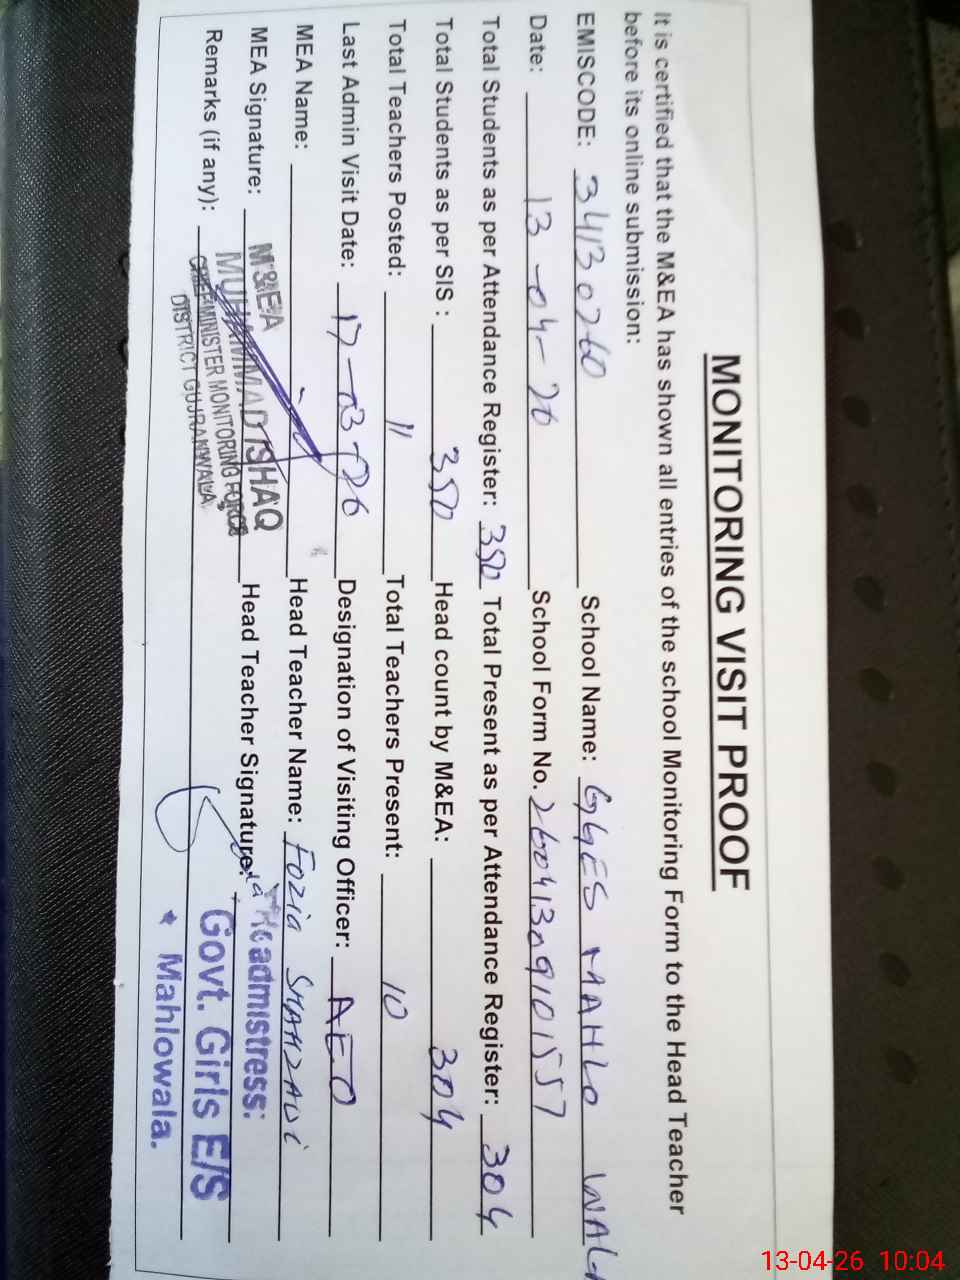 MONITORING VISIT PROOF
It is certified that the M&EA has shown all entries of the school Monitoring Form to the Head Teacher
before its online submission:
EMISCODE: 34130260 School Name: GGES MAHLO WALA
Date: 13-04-26 School Form No. 26041309101557
Total Students as per Attendance Register: 350 Total Present as per Attendance Register: 304
Total Students as per SIS: 350 Head count by M&EA: 304
Total Teachers Posted: 11 Total Teachers Present: 10
Last Admin Visit Date: 17-03-26 Designation of Visiting Officer: AEO
MEA Name: Head Teacher Name: Fozia SHAHZADi
MEA Signature: Head Teacher Signature:
Remarks (if any):
M&EA
MUHAMMAD ISHAQ
CHIEF MINISTER MONITORING FORCE
DISTRICT GUJRANWALA
Headmistress:
Govt. Girls E/S
* Mahlowala.
13-04-26 10:04